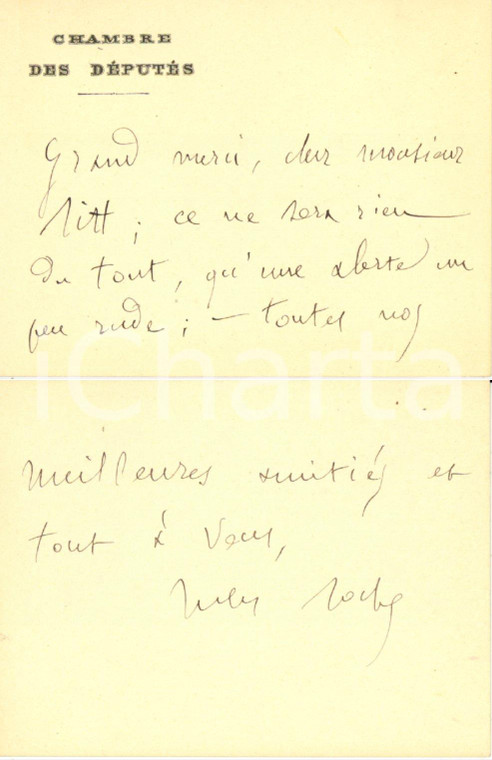 CHAMBRE
DES DÉPUTÉS
Grand merci, cher monsieur
Pitt ; ce ne sera rien
du tout, qu'une alerte un
peu rude ; – toutes nos
iCharta
meilleures amitiés et
tout à vous,
Jules Roche